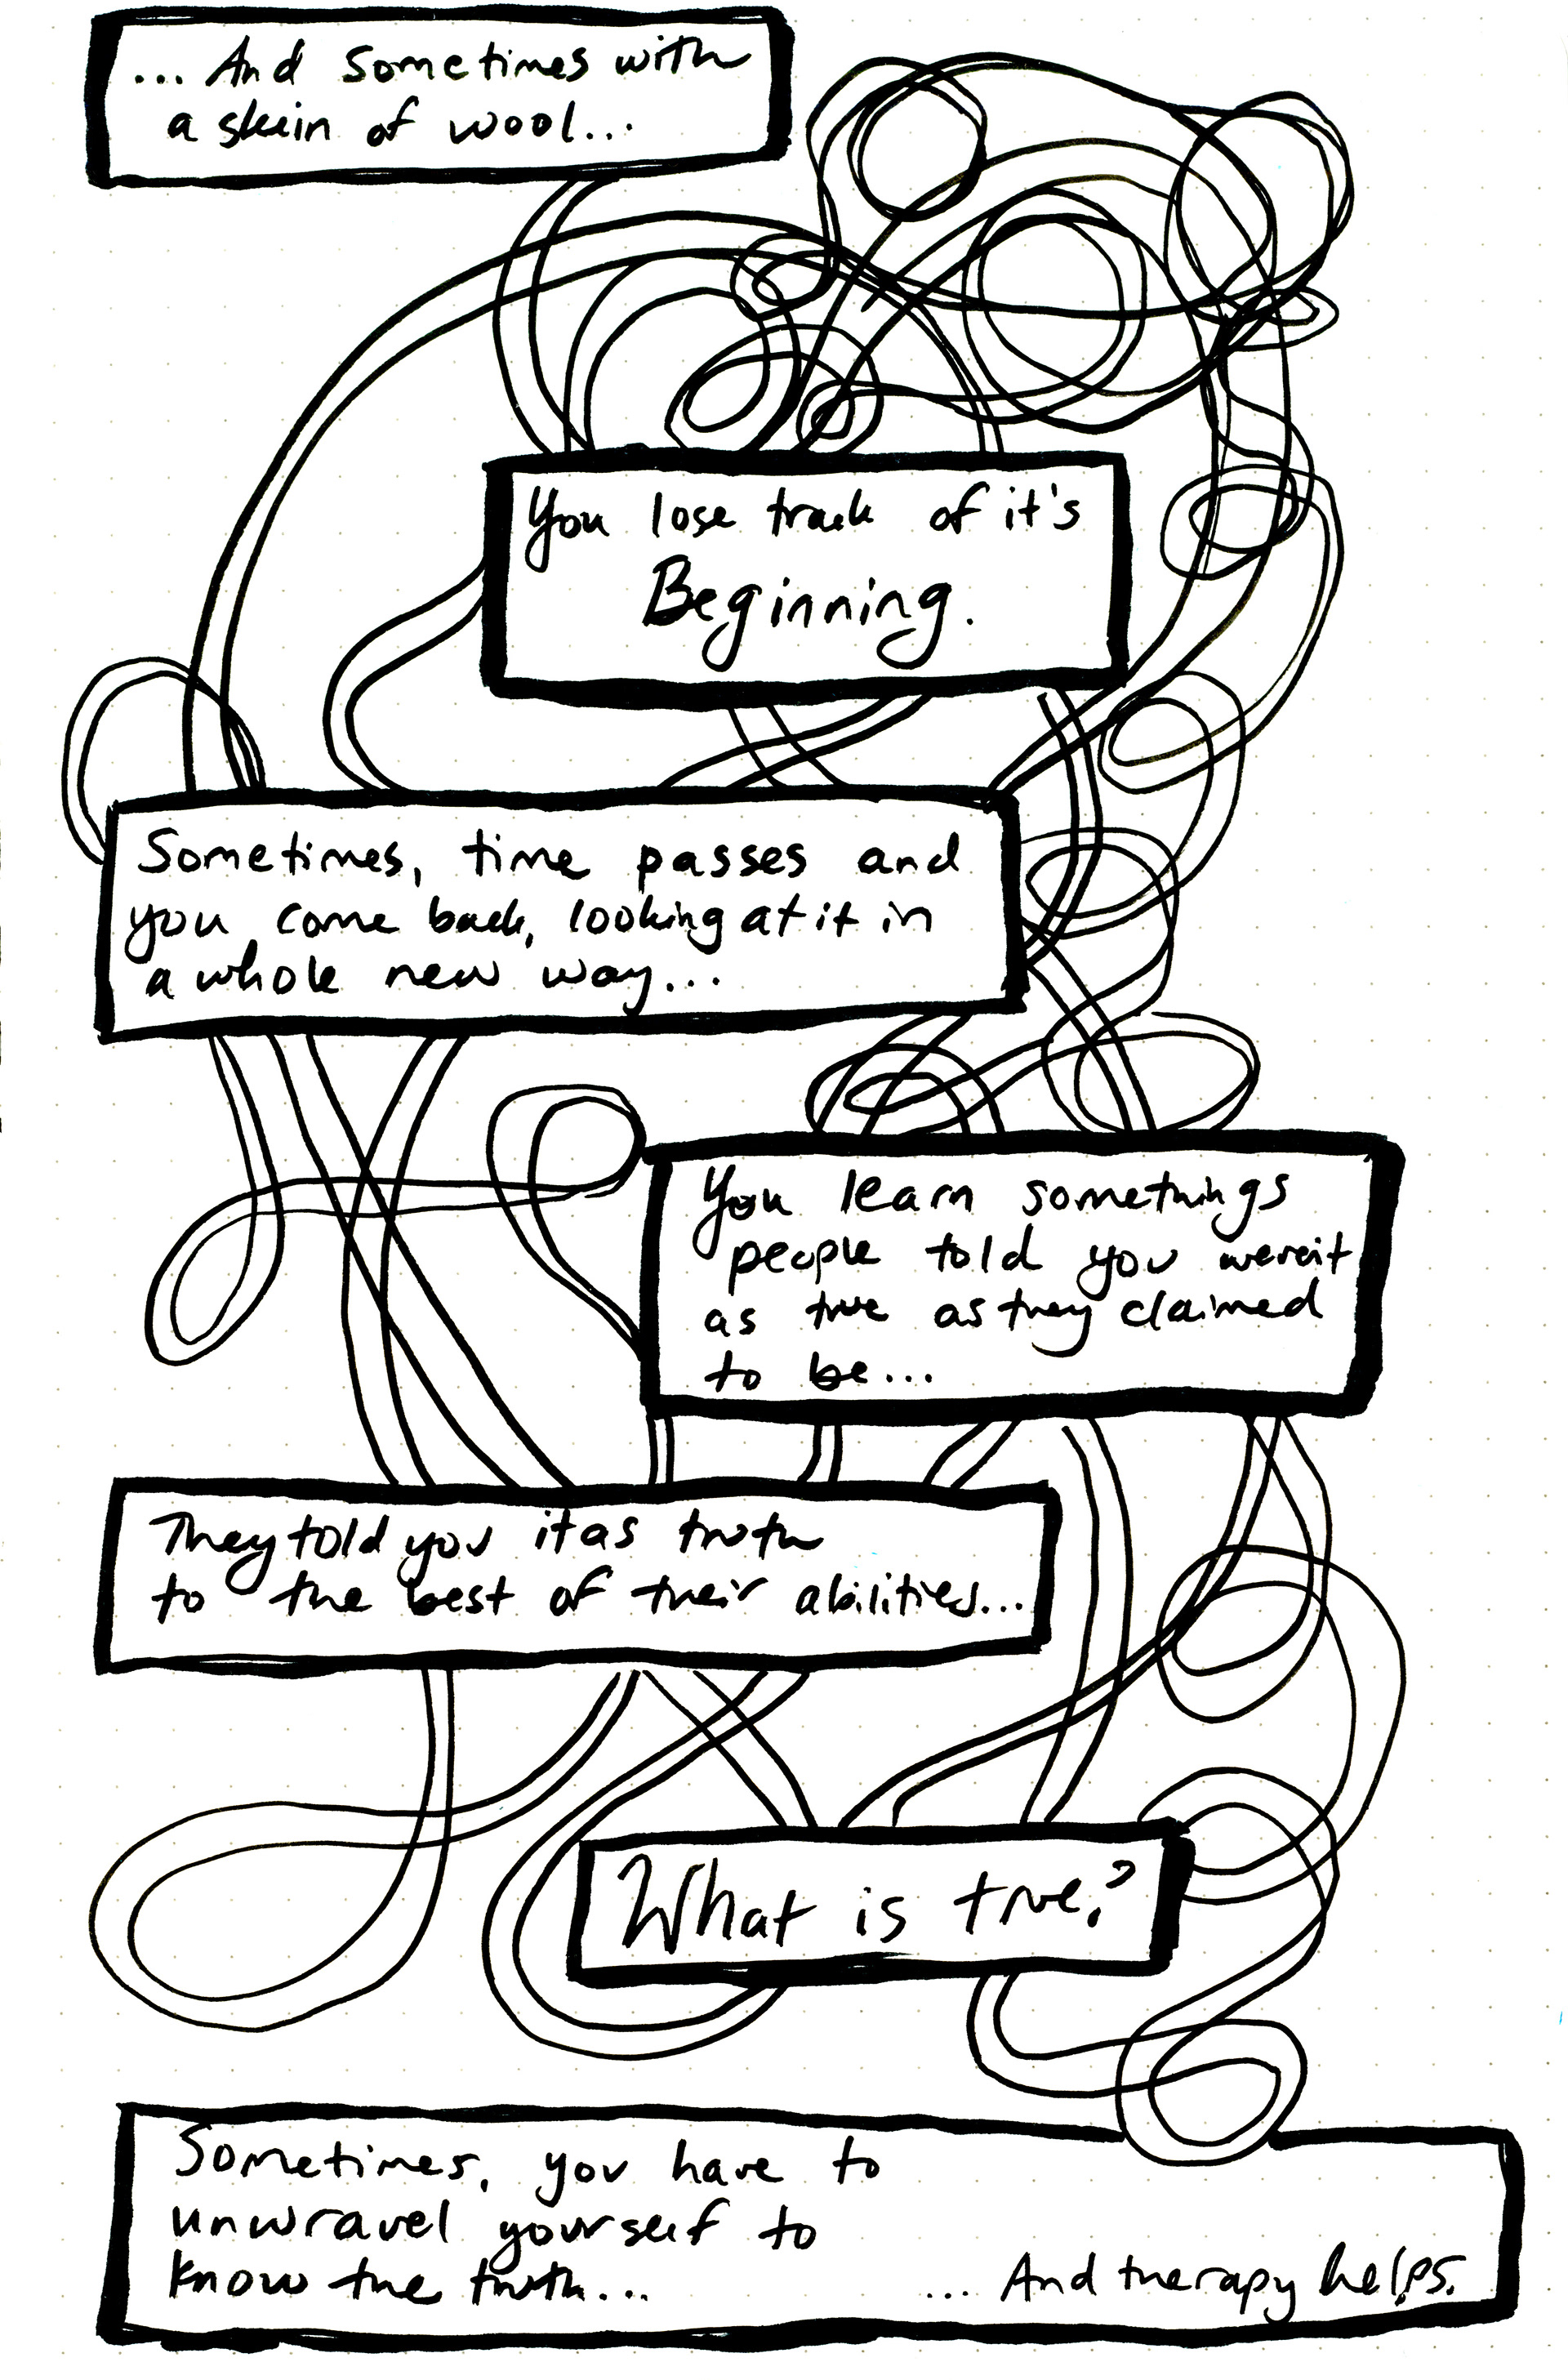 ... And sometimes with
a skein of wool...
You lose track of it's
Beginning.
Sometimes, time passes and
you come back, looking at it in
a whole new way...
You learn somethings
people told you weren't
as true as they claimed
to be...
They told you it as truth
to the best of their abilities...
What is true?
Sometimes, you have to
unwravel yourself to
know the truth...
... And therapy helps.